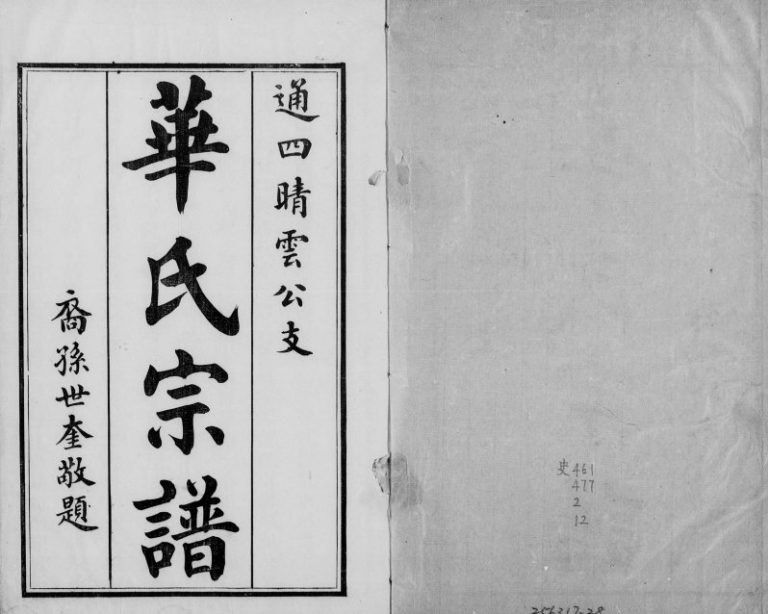 通四晴雲公支
華氏宗譜
裔孫世奎敬題
史461
477
2
12
256317-28